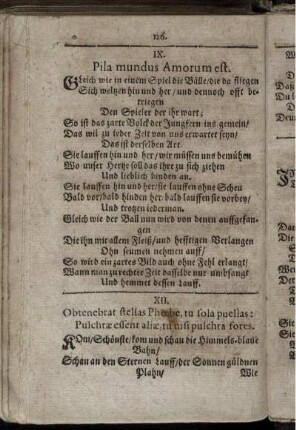 126.
IX.
Pila mundus Amorum est.
Gleich wie in einem Spiel die Bälle/die da fliegen
Sich weltzen hin und her/und dennoch offt be-
triegen
Den Spieler der ihr wart;
So ist das zarte Volck der Jungfern ins gemein/
Das wil zu jeder Zeit von uns erwartet seyn/
Das ist derselben Art.
Sie lauffen hin und her/wir müssen uns bemühen
Wo unser Hertze soll das ihre zu sich ziehen
Und lieblich binden an.
Sie lauffen hin und her/sie lauffen ohne Scheu
Bald vor/bald hinden her/bald lauffen sie vorbey/
Und trotzen iederman.
Gleich wie der Ball nun wird von denen auffgefan-
gen
Die ihn mit allem Fleiß/und hefftigen Verlangen
Ohn seumen nehmen auff/
So wird ein zartes Bild auch ohne Fehl erlangt/
Wann man zu rechter Zeit dasselbe nur umbfangt
Und hemmet dessen Lauff.
XII.
Obtenebrat stellas Phoebe, tu sola puellas:
Pulchræ essent aliæ, tu nisi pulchra fores.
KOm/Schönste/kom und schau die Himmels-blaue
Bahn/
Schau an den Sternen Lauff/der Sonnen güldnen
Plahn/
Wie